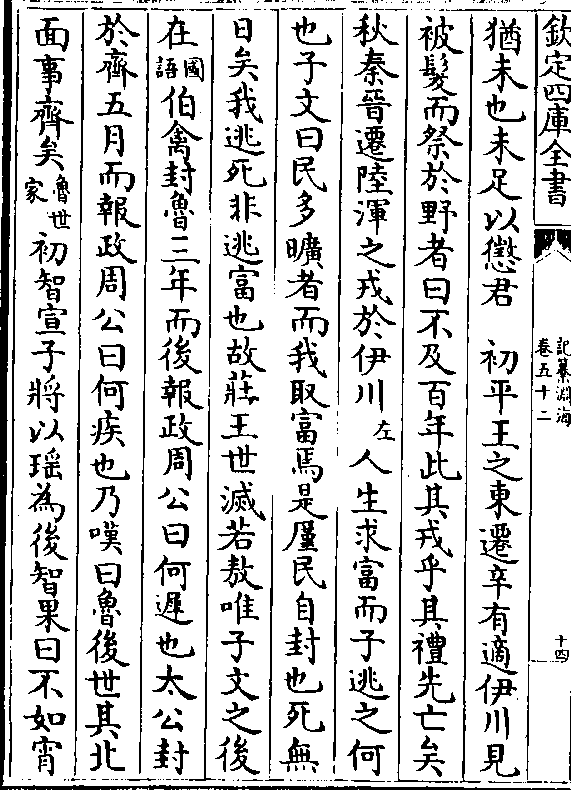 欽定四庫全書
記纂淵海
卷五十二
十四
猶未也未足以懲君　初平王之東遷辛有適伊川見
被髮而祭於野者曰不及百年此其戎乎其禮先亡矣
秋秦晉遷陸渾之戎於伊川左人生求富而子逃之何
也子文曰民多曠者而我取富焉是厪民自封也死無
日矣我逃死非逃富也故莊王世滅若敖唯子文之後
在國語伯禽封魯三年而後報政周公曰何遲也太公封
於齊五月而報政周公曰何疾也乃嘆曰魯後世其北
面事齊矣魯世家初智宣子將以瑶為後智果曰不如宵